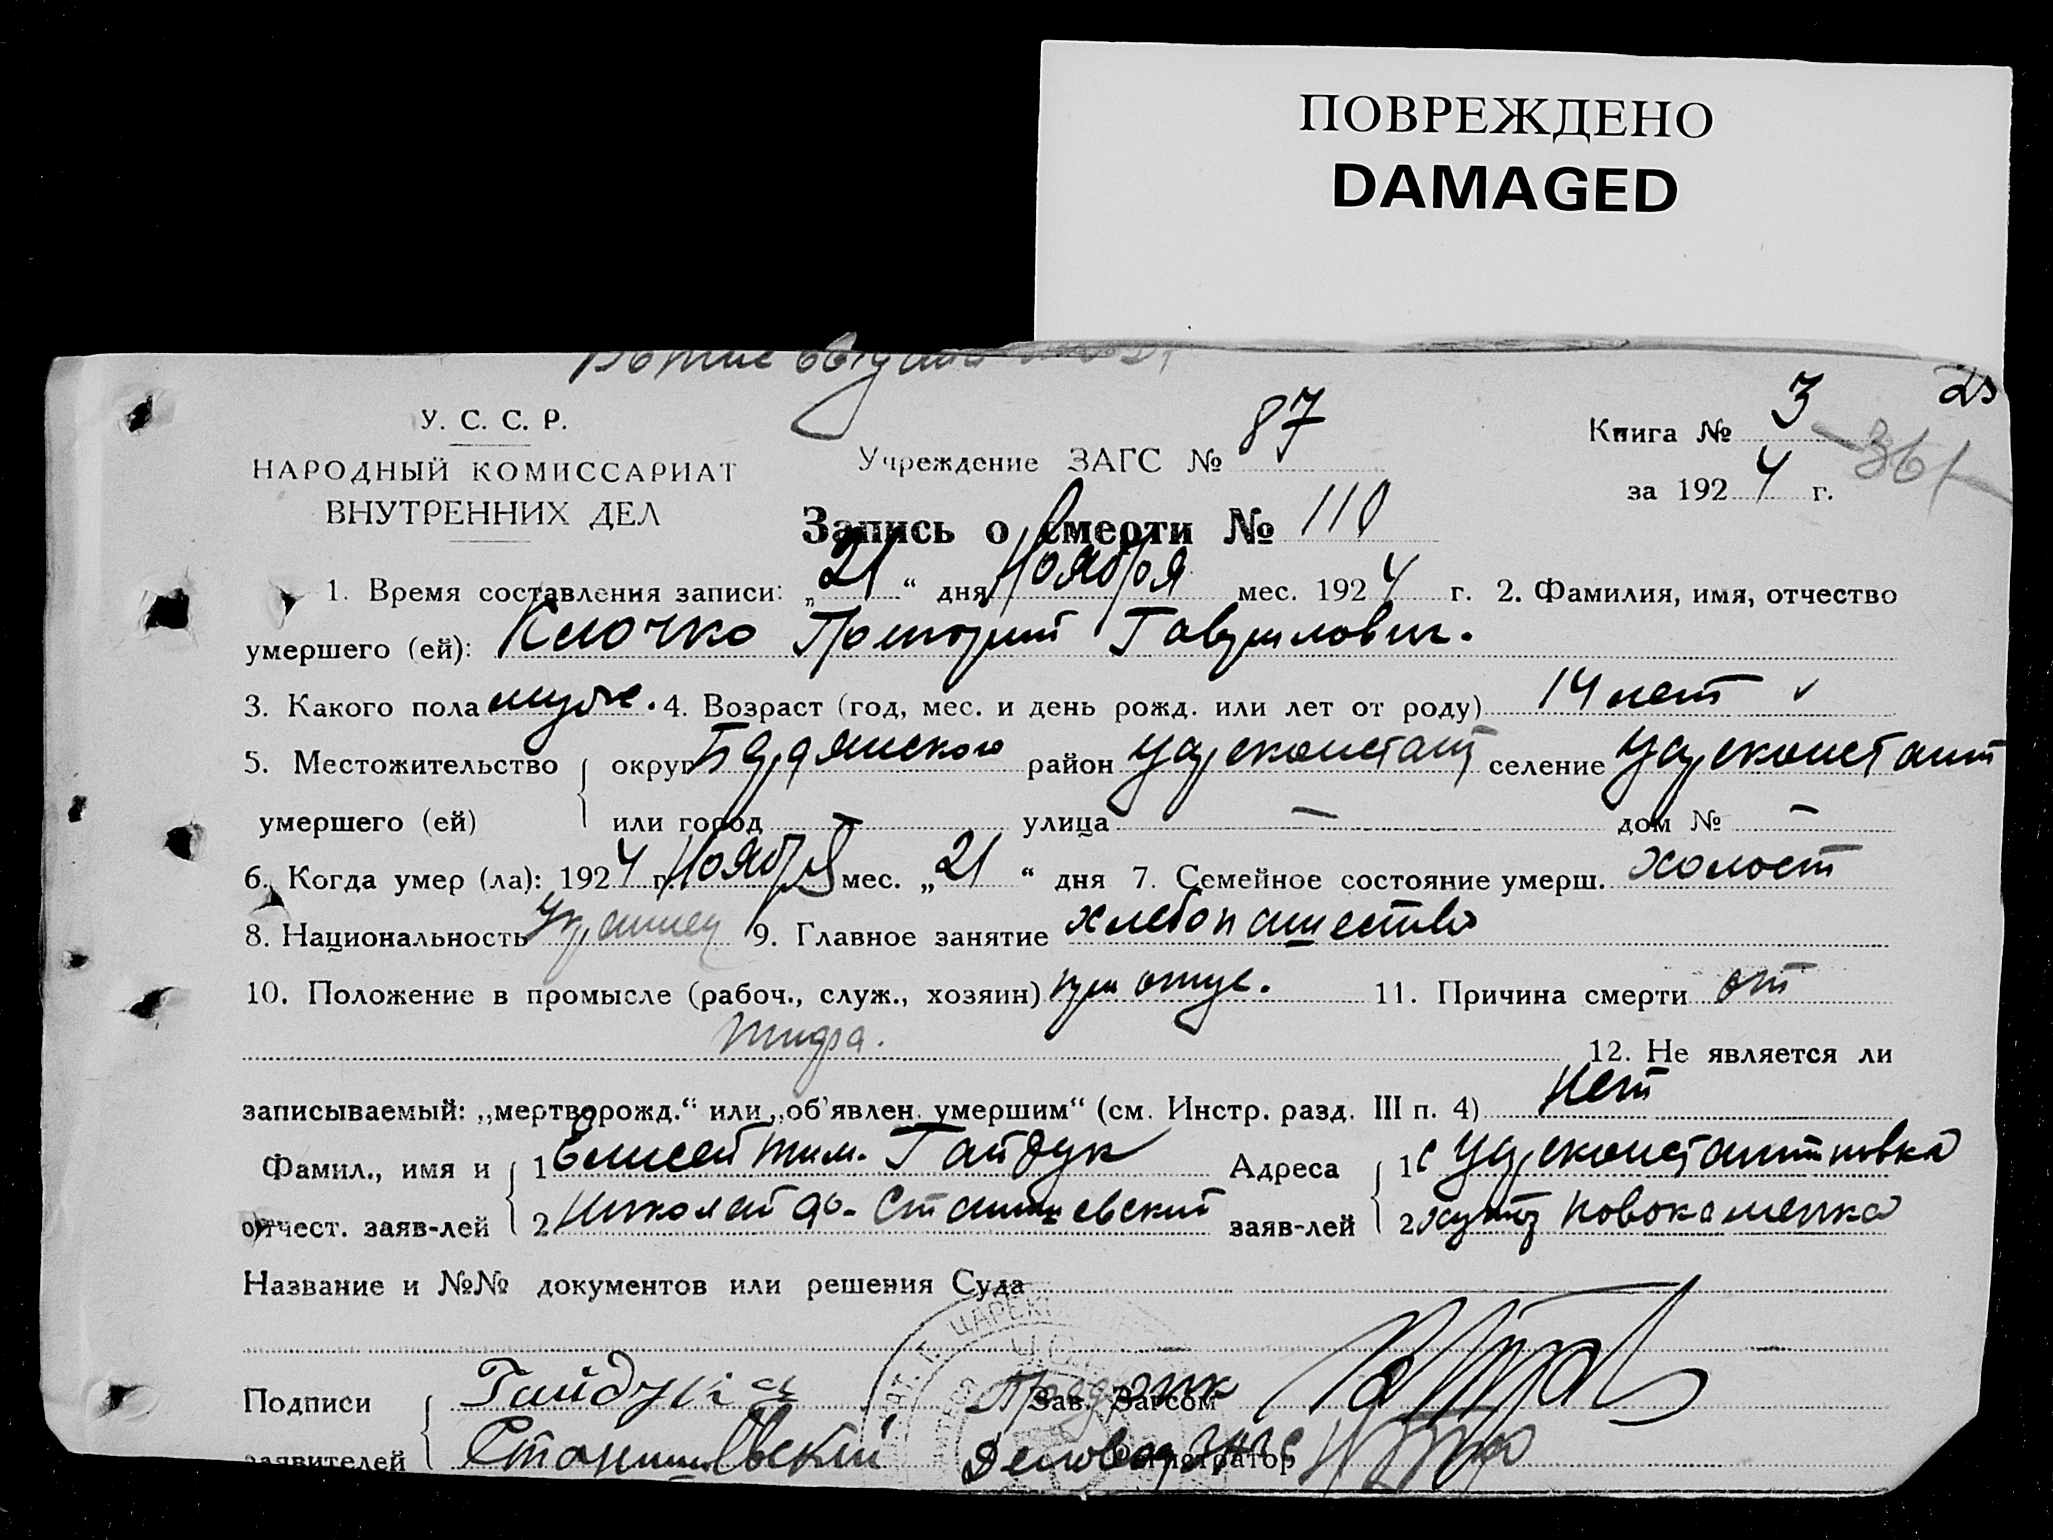 ПОВРЕЖДЕНО
DAMAGED
У. С. С. Р.
НАРОДНЫЙ КОМИССАРИАТ
ВНУТРЕННИХ ДЕЛ
Учреждение ЗАГС № 87
Книга № 3
23
за 1924 г.
361
Запись о смерти № 110
1. Время составления записи: „21“ дня Ноября мес. 1924 г. 2. Фамилия, имя, отчество
умершего (ей): Клочко Гавриилович.
3. Какого пола мужс. 4. Возраст (год, мес. и день рожд. или лет от роду) 14 лет
5. Местожительство округ Бердянского район Царсконстант селение Царсконстант
умершего (ей) или город — улица — дом № —
6. Когда умер (ла): 1924 г. Ноября мес. „21“ дня 7. Семейное состояние умерш. холост
8. Национальность Украинец 9. Главное занятие хлебопашество
10. Положение в промысле (рабоч., служ., хозяин) при отце. 11. Причина смерти от
тифа. 12. Не является ли
записываемый: „мертворожд.“ или „об'явлен умершим“ (см. Инстр. разд. III п. 4) Нет
Фамил., имя и 1 Елисей Тим. Гайдук Адреса 1 с Царсконстантиновка
отчест. заяв-лей 2 Николай Станишевский заяв-лей 2 хутор Новокаменка
Название и №№ документов или решения Суда
ЦАРЕК
Подписи Гайдук Зав. Загсом
заявителей Станишевский Делов ЗАГС Регистратор